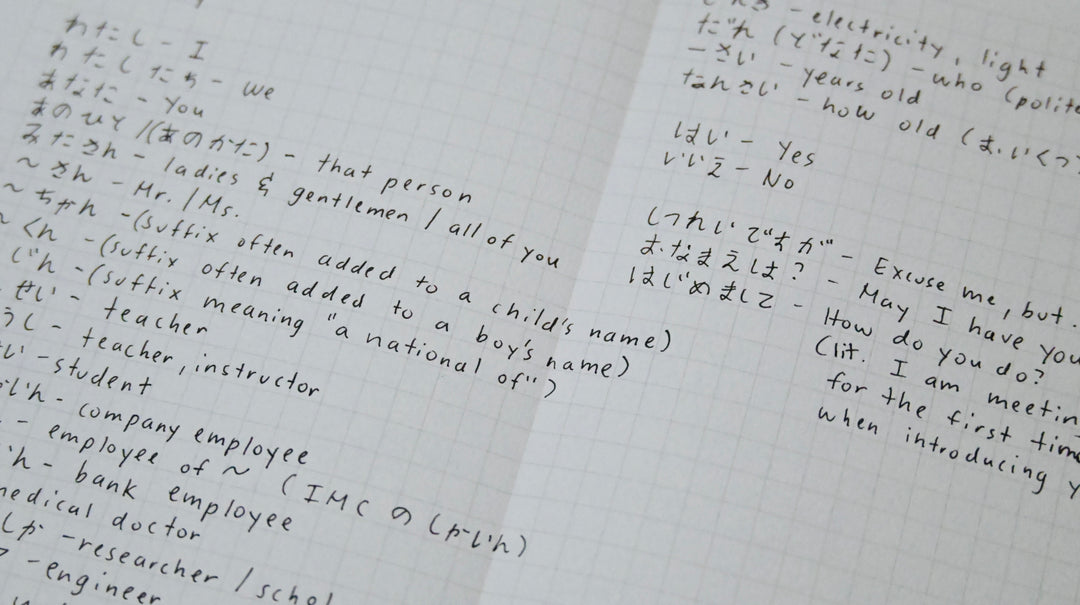 わたし - I
わたしたち - we
あなた - You
あのひと /(あのかた) - that person
みたさん - ladies & gentlemen / all of you
~ さん - Mr. / Ms.
~ ちゃん - (suffix often added to a child's name)
~ くん - (suffix often added to a boy's name)
じん - (suffix meaning "a national of")
せい - teacher
うし - teacher, instructor
い - student
いん - company employee
- employee of ~ (IMC の しゃいん)
いん - bank employee
medical doctor
しゃ - researcher /
- engineer
- electricity, light
だれ (どなた) - who (polite
-さい - years old
なんさい - how old (お・いくつ
はい - Yes
いいえ - No
しつれいですが - Excuse me, but
お・なまえは? - May I have you
はじめまして - How do you do?
(lit. I am meetin
for the first tim
when introducing y